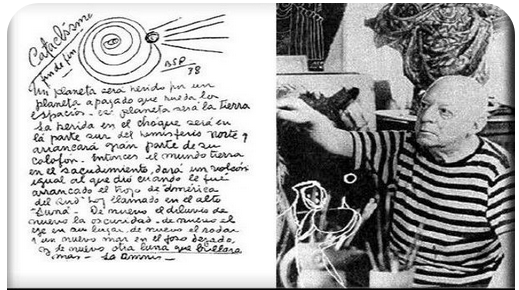 Cataclismo
fin de fin
BSP
38
Un planeta será herido por un
planeta apagado que rueda los
espacios - ese planeta será la tierra
La herida en el choque será en
la parte sur del hemisferio norte y
arrancará gran parte de su
colofón. Entonces el mundo tierra
en el sacudimiento, dará un volcón
igual al que dió cuando le fué
arrancado el trozo de "América
del Sud" hoy llamado en el alto
"Luna" - De nuevo el diluvio de
nuevo la oscuridad, de nuevo el
eje en su lugar, de nuevo el rodar
y un nuevo mar en el foso dejado,
y de nuevo otra luna que brillara
mas -